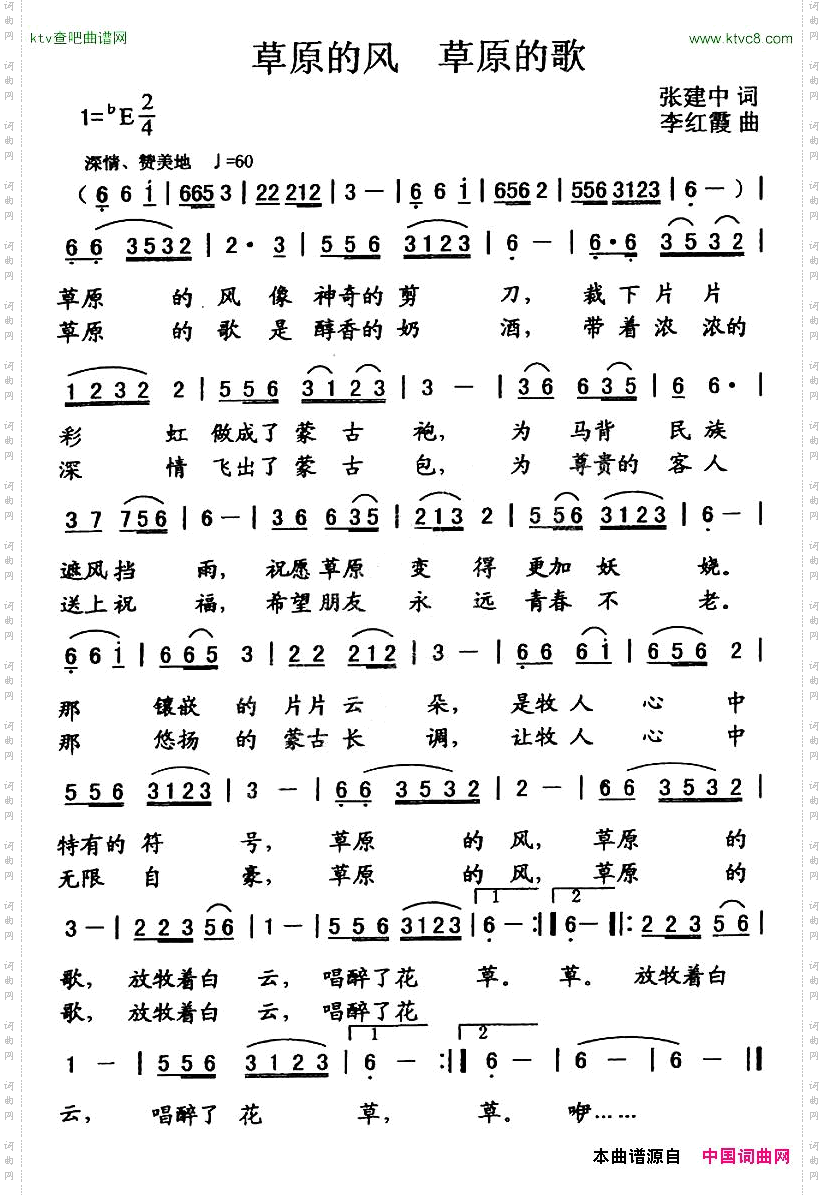 ktv查吧曲谱网
www.ktvc8.com
草原的风 草原的歌
1=♭E 2/4
张建中 词
李红霞 曲
深情、赞美地 ♩=60
( 6 6 i | 665 3 | 22 212 | 3 － | 6 6 i | 656 2 | 556 3123 | 6 － ) |
6 6 3532 | 2· 3 | 5 5 6 3123 | 6 － | 6·6 3 5 3 2 |
草原 的 风 像 神奇的 剪 刀， 裁 下 片 片
草原 的 歌 是 醇香的 奶 酒， 带 着 浓 浓的
1 2 3 2 2 | 5 5 6 3 1 2 3 | 3 － | 3 6 6 3 5 | 6 6· |
彩 虹 做成了 蒙 古 袍， 为 马背 民 族
深 情 飞出了 蒙 古 包， 为 尊贵的 客 人
3 7 7 5 6 | 6 － | 3 6 6 3 5 | 2 1 3 2 | 5 5 6 3 1 2 3 | 6 － |
遮风挡 雨， 祝愿草原 变 得 更加 妖 娆。
送上祝 福， 希望朋友 永 远 青春 不 老。
6 6 i | 6 6 5 3 | 2 2 2 1 2 | 3 － | 6 6 6 i | 6 5 6 2 |
那 镶嵌 的 片片 云 朵， 是牧 人 心 中
那 悠扬 的 蒙古 长 调， 让牧 人 心 中
5 5 6 3 1 2 3 | 3 － | 6 6 3 5 3 2 | 2 － | 6 6 3 5 3 2 |
特有的 符 号， 草原 的 风， 草原 的
无限 自 豪， 草原 的 风， 草原 的
3 － | 2 2 3 5 6 | 1 － | 5 5 6 3 1 2 3 | 1 6 － :‖ 2 6 － ‖: 2 2 3 5 6 |
歌， 放牧着白 云， 唱醉了花 草。 草。 放牧着白
歌， 放牧着白 云， 唱醉了花
1 － | 5 5 6 3 1 2 3 | 1 6 － :‖ 2 6 － | 6 6 － ‖
云， 唱醉了 花 草， 草。 咿……
本曲谱源自 中国词曲网
词曲网